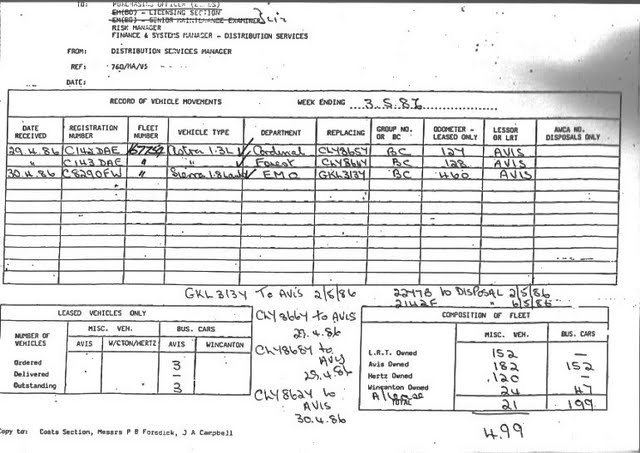 TO: PURCHASING OFFICER
EM(BO) - LICENSING SECTION
EM(BO) - SENIOR MAINTENANCE EXAMINER
RISK MANAGER
FINANCE & SYSTEMS MANAGER - DISTRIBUTION SERVICES
FROM: DISTRIBUTION SERVICES MANAGER
REF: 760/HA/VS
DATE:
RECORD OF VEHICLE MOVEMENTS WEEK ENDING 3.5.86
DATE RECEIVED REGISTRATION NUMBER FLEET NUMBER VEHICLE TYPE DEPARTMENT REPLACING GROUP NO. OR BC ODOMETER - LEASED ONLY LESSOR OR LRT AWCA NO. DISPOSALS ONLY
29.4.86 C142 DAE Astra 1.3L Cardinal CLY868Y BC 127 AVIS
" C143 DAE " " Forest CLY866Y BC 128 AVIS
30.4.86 C829OFW " Sierra 1.8 E.M.O. GKL313Y BC 460 AVIS
GKL 313Y To AVIS 2/5/86 2247B to DISPOSAL 2/5/86
2142F " 6/5/86
LEASED VEHICLES ONLY
NUMBER OF VEHICLES MISC. VEH. BUS. CARS
AVIS W/CTON/HERTZ AVIS WINCANTON
Ordered 3
Delivered –
Outstanding 3
CLY 866Y to AVIS
29.4.86
CLY 868Y to
AVIS
29.4.86
CLY 862Y to
AVIS
30.4.86
COMPOSITION OF FLEET
MISC. VEH. BUS. CARS
L.R.T. Owned 152 –
Avis Owned 182 152
Hertz Owned 120 –
Wincanton Owned 24 47
A/Lease
TOTAL 21 199
499
Copy to: Costs Section, Messrs P B Forsdick, J A Campbell